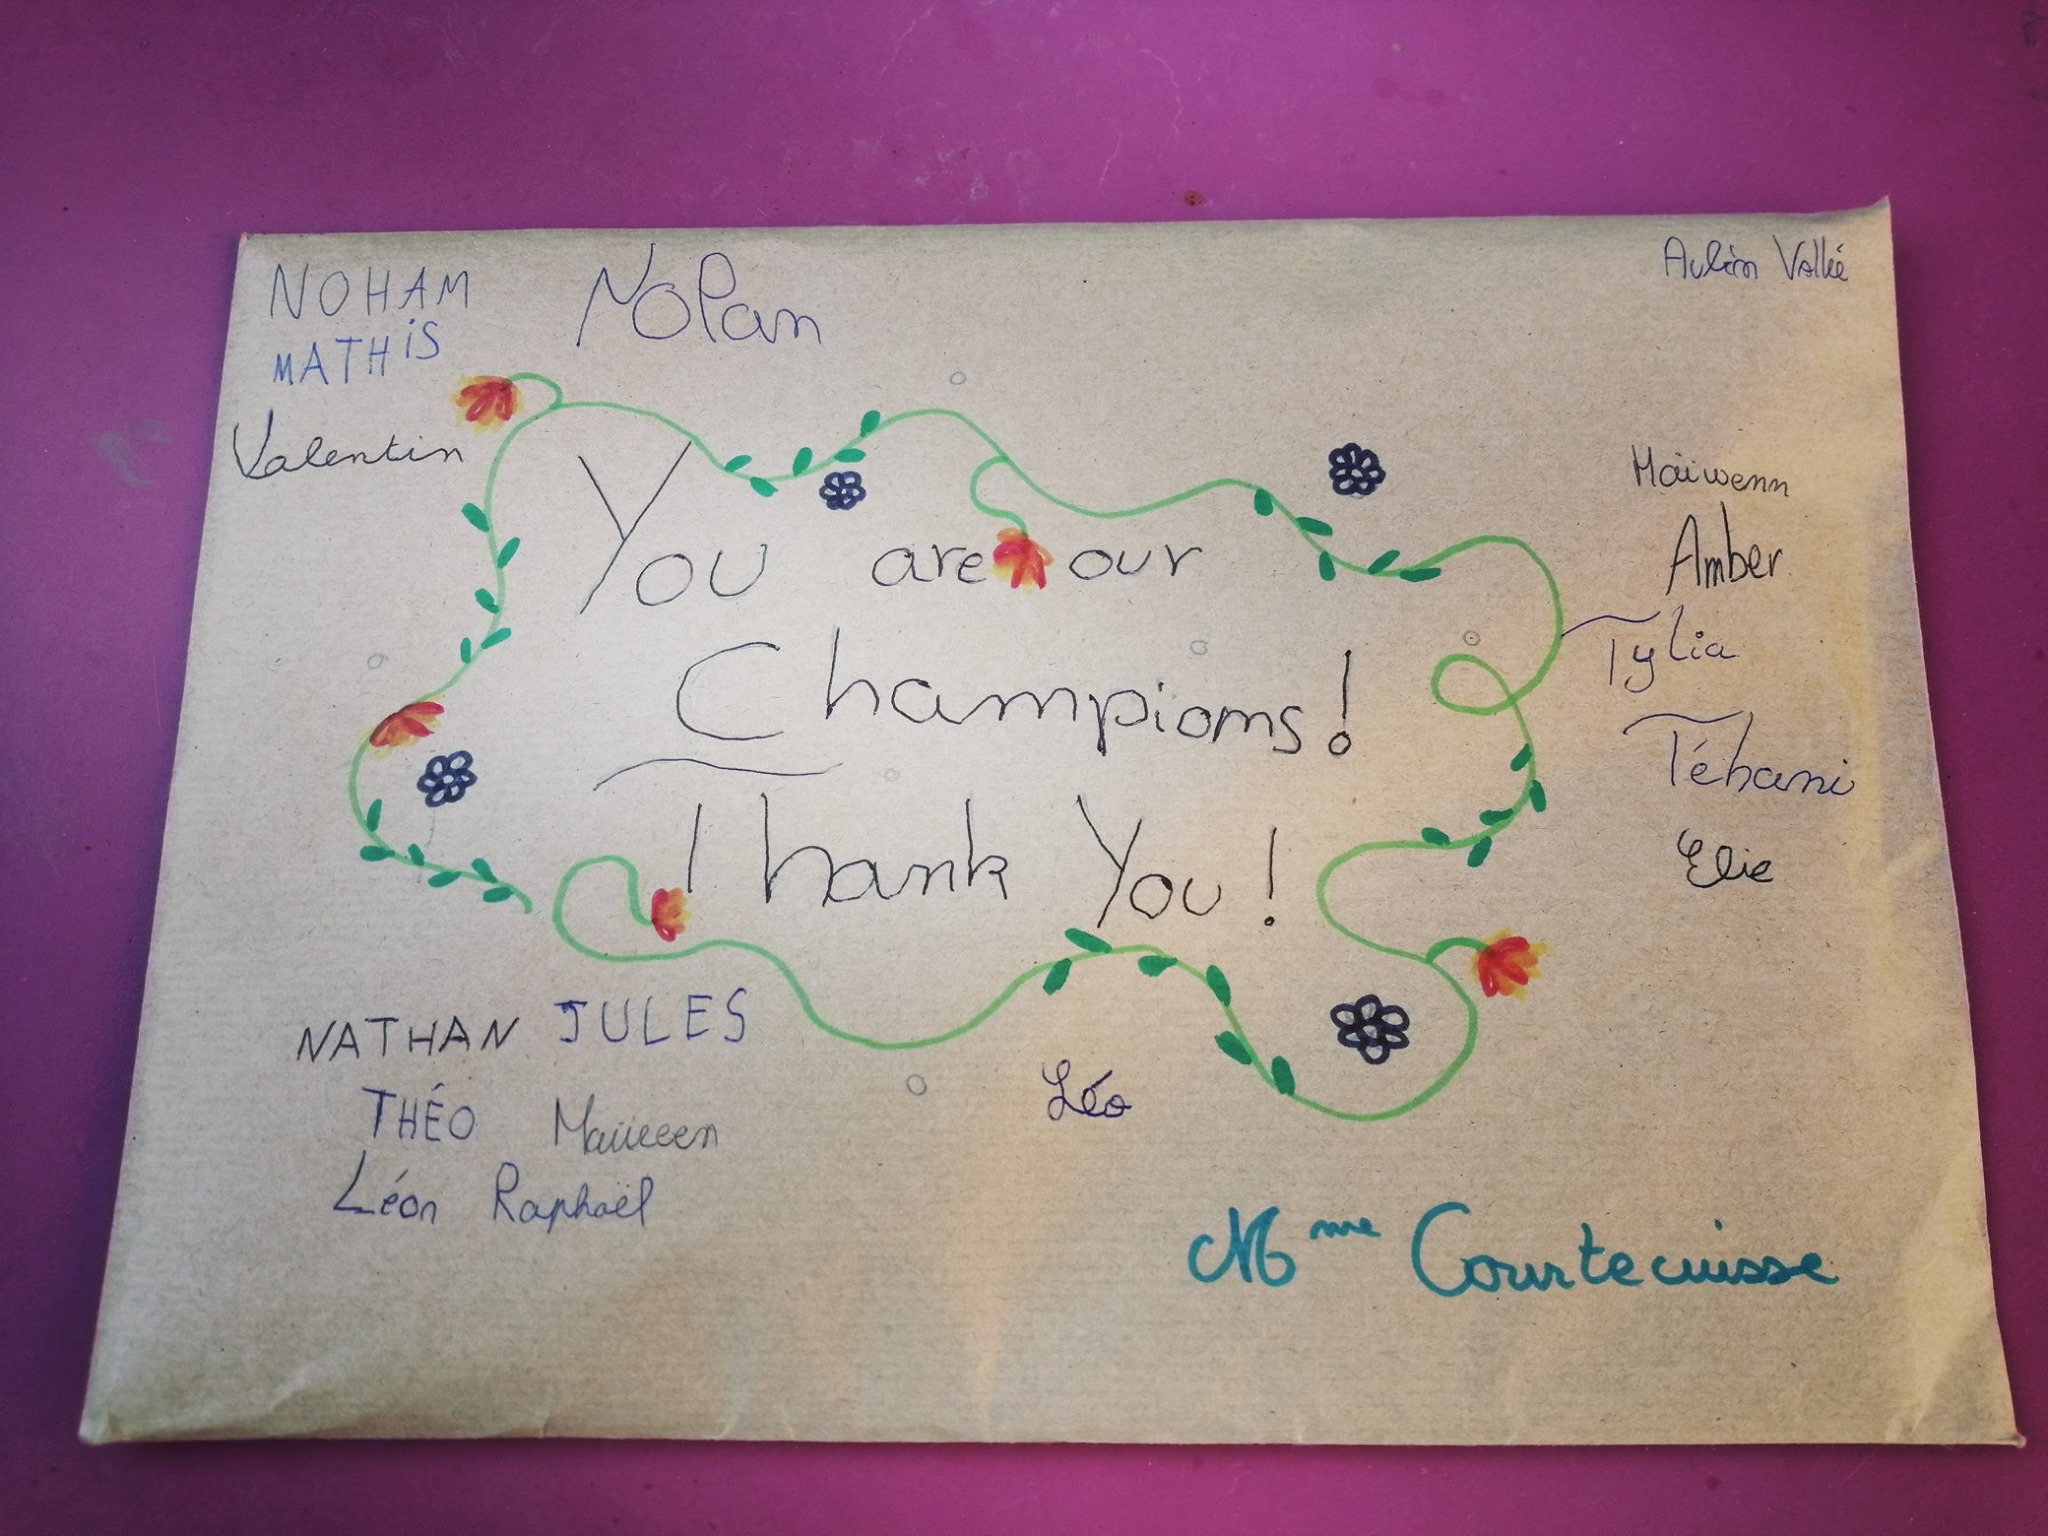 NOHAM
NOLan
MATHiS
Valentin
You are our
Champions!
Thank You!
Maïwenn
Amber
Tylia
Elie
NATHAN JULES
THÉO
Léon Raphaël
Léo
Mme Courtecuisse